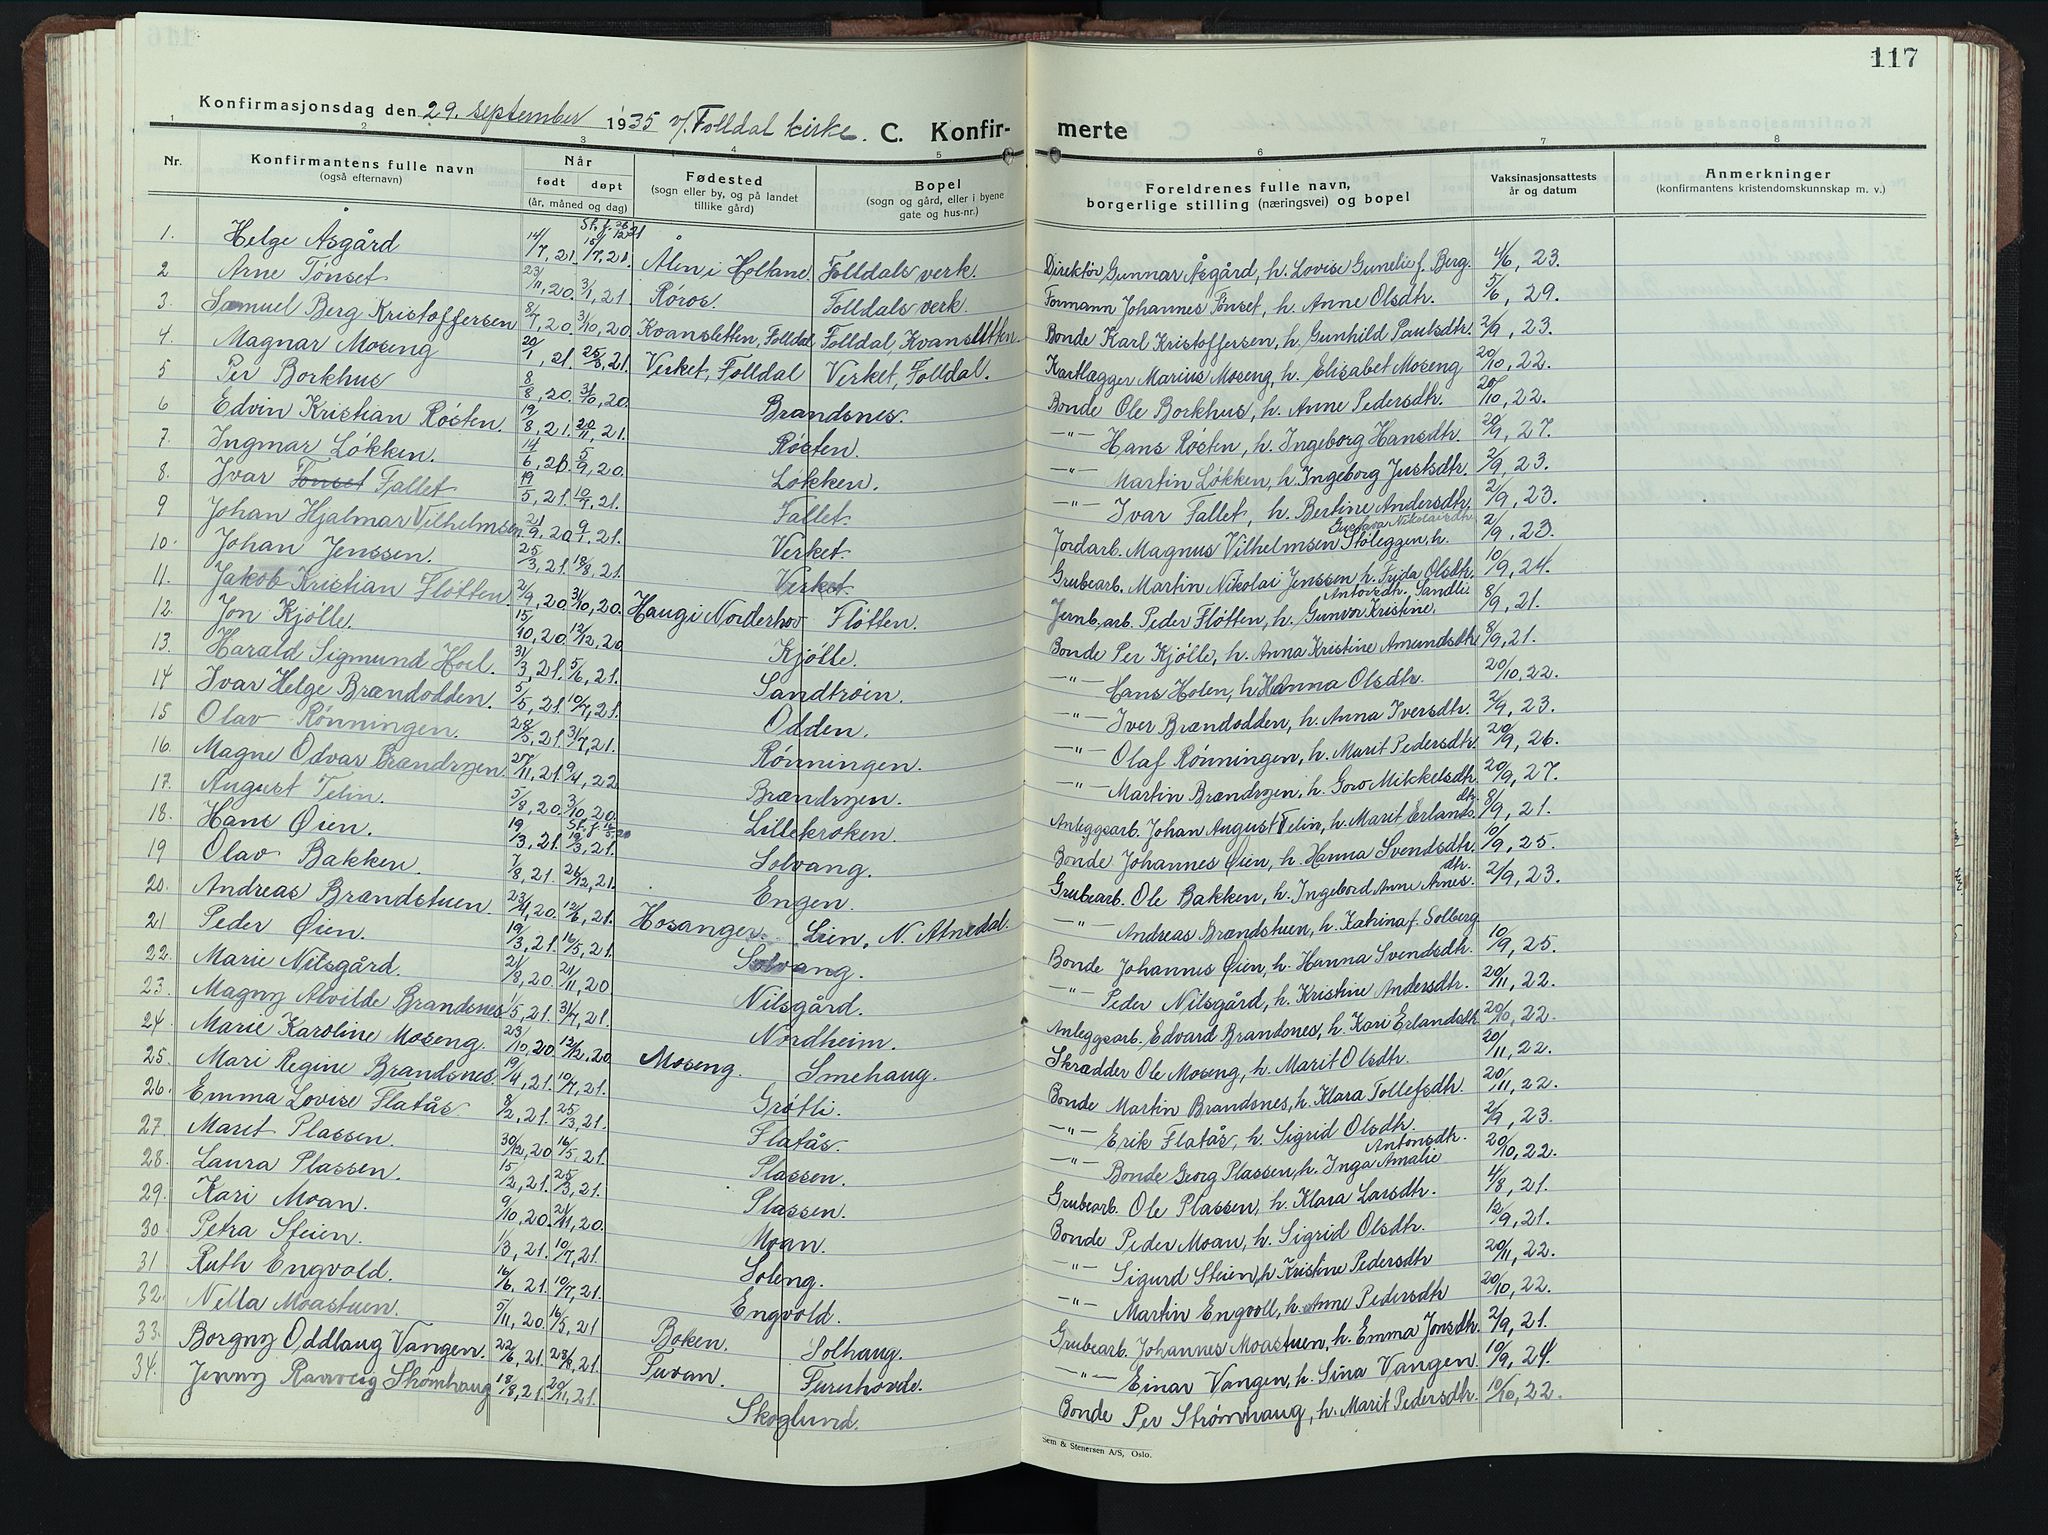 117
Konfirmasjonsdag den 29. september 1935 v/ Folldal kirke. C. Konfir- merte
1 2 3 4 5 6 7 8
Nr. Konfirmantens fulle navn (også efternavn) Når født døpt (år, måned og dag) Fødested (sogn eller by, og på landet tillike gård) Bopel (sogn og gård, eller i byene gate og hus-nr.) Foreldrenes fulle navn, borgerlige stilling (næringsvei) og bopel Vaksinasjonsattests år og datum Anmerkninger (konfirmantens kristendomskunnskap m. v.)
1. Helge Åsgård 14/7, 21. St. f. 26/12 21 15/7, 21. Ålen i Holtane Folldals verk. Direktør Gunnar Åsgård, h. Lovise Gunelie f. Berg. 4/6, 23.
2 Arne Tønset 23/11, 20. 3/1, 21. Røros. Folldals verk. Formann Johannes Tønset, h. Anne Olsdtr. 5/6, 29.
3. Samuel Berg Kristoffersen 8/7, 20. 31/10, 20. Kvansletten, Folldal Folldal, Kvansletten. Bonde Karl Kristoffersen, h. Gunhild Paulsdtr. 2/9, 23.
4. Magnar Moseng 20/1, 21. 25/3, 21. Verket, Folldal Verket, Folldal. Kartlægger Marius Moseng, h. Elisabet Moseng 20/10, 22.
5 Per Borkhus 8/8, 20. 31/10, 20. Brandsnes. Bonde Ole Borkhus, h. Anne Pedersdtr. 20/10, 22.
6 Edvin Kristian Røsten. 19/8, 21. 20/11, 21. Røsten. -"- Hans Røsten, h. Ingeborg Hansdtr. 20/9, 27.
7. Ingmar Løkken. 14/6, 20. 5/9, 20. Løkken. -"- Martin Løkken, h. Ingeborg Justsdtr. 2/9, 23.
8. Ivar Tønset Fallet 19/5, 21. 10/7, 21. Fallet. -"- Ivar Fallet, h. Bertine Andersdtr. 2/9, 23.
9 Johan Hjalmar Vilhelmsen 21/9, 20. 9/1, 21. Verket. Jordarb. Magnus Vilhelmsen Støleggen, h. Gustava Nikolaisdtr. 2/9, 23.
10. Johan Jenssen. 25/3, 21. 18/8, 21. Verket. Grubearb. Martin Nikolai Jenssen h. Frida Olsdtr. 10/9, 24.
11. Jakob Kristian Fløtten. 2/9, 20. 31/10, 20. Haug i Norderhov Fløtten. Jernb.arb. Peder Fløtten, h. Gunvor Kristine Antonsdtr. Sandli. 8/9, 21.
12. Jon Kjølle. 15/10, 20. 12/12, 20. Kjølle. Bonde Per Kjølle, h. Anna Kristine Amundsdtr 8/9, 21.
13. Harald Sigmund Hoel. 31/3, 21. 5/6, 21. Sandtrøin. -"- Hans Holen, h. Hanna Olsdtr. 20/10, 22.
14 Ivar Helge Brændodden. 5/5, 21. 10/7, 21. Odden. -"- Iver Brændodden, h. Anna Iversdtr. 2/9, 23.
15 Olav Rønningen. 28/3, 21. 31/7, 21. Rønningen. -"- Olaf Rønningen, h. Marit Pedersdtr. 20/9, 26.
16. Magne Odvar Brændryen. 27/11, 21. 9/4, 22 Brændryen. -"- Martin Brændryen, h. Goro Mikkelsdtr. 20/9, 27.
17. August Telin. 5/8, 20. 3/10, 20. Lillekroken. Anleggsarb. Johan August Telin, h. Marit Erlandsdtr. 8/9, 21.
18. Hans Øien. 19/3, 21. St. f. 19/3, 21. Solvang. Bonde Johannes Øien, h. Hanna Svendsdtr. 10/9, 25.
19 Olav Bakken. 7/8, 21. 26/12, 21. Engen. Grubearb. Ole Bakken, h. Ingebord Anne Arnesdtr. 2/9, 23.
20. Andreas Brændstuen. 23/4, 20. 12/6, 21. Hosanger. Lien, N. Atnedal. -"- Andreas Brændstuen, h. Katrina f. Solberg
21 Peder Øien. 19/3, 21. 16/5, 21. Solvang. Bonde Johannes Øien, h. Hanna Svendsdtr. 10/9, 25.
22. Marie Nilsgård. 21/8, 20 21/11, 20 Nilsgård. -"- Peder Nilsgård, h. Kristine Andersdtr. 20/11, 22.
23. Magny Alvilde Brandsnes 1/5, 21. 31/7, 21. Nordheim. Anleggsarb. Edvard Brandsnes, h. Kari Erlandsdtr. 20/10, 22.
24. Marie Karoline Moseng. 23/10, 20. 12/12, 20. Moseng. Smehaug. Skrædder Ole Moseng, h. Marit Olsdtr. 20/11, 22.
25. Mari Regine Brandsnes. 19/4, 21. 10/7, 21. Grøtli. Bonde Martin Brandsnes, h. Klara Tollefsdtr. 20/11, 22.
26. Emma Lovise Flatås 8/2, 21. 25/3, 21. Flatås. -"- Erik Flatås, h. Sigrid Olsdtr. 2/9, 23.
27. Marit Plassen. 30/12, 20 16/5, 21. Plassen. -"- Bonde Georg Plassen, h. Inga Amalie Antonsdtr. 20/10, 22.
28. Laura Plassen. 15/2, 21. 25/3, 21. Plassen. Grubearb. Ole Plassen, h. Klara Larsdtr. 4/8, 21.
29. Kari Moan. 9/10, 20. 21/11, 20. Moan. Bonde Peder Moan, h. Sigrid Olsdtr. 12/9, 21.
30 Petra Steien. 1/3, 21. 10/7, 21. Soleng. -"- Sigurd Steien, h. Kristine Pedersdtr 20/11, 22.
31 Ruth Engvold. 16/6, 21. 10/7, 21. Engvold. -"- Martin Engvoll, h. Anne Pedersdtr 20/10, 22.
32. Nella Moastuen. 5/11, 20. 16/5, 21 Boken. Solhaug. Grubearb. Johannes Moastuen, h. Emma Jonsdtr. 2/9, 21.
33. Borgny Oddlaug Vangen. 22/6, 21. 28/8, 21. Furuhovde. -"- Einar Vangen, h. Sina Vangen. 10/9, 24.
34. Jenny Rannveig Strømhaug 18/8, 21. 20/11, 21. Skoglund. Bonde Per Strømhaug, h. Marit Pedersdtr. 10/10, 22.
Sem & Stenersen A/S, Oslo.